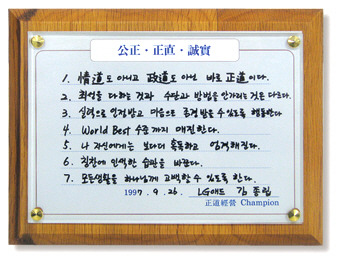 公正·正直·誠實
1. 情道도 아니고 政道도 아닌 바로 正道이다.
2. 최선을 다하는 것과 수단과 방법을 안가리는 것은 다르다.
3. 실력으로 인정받고 마음으로 존경 받을 수 있도록 행동한다
4. World Best 수준까지 매진한다.
5. 나 자신에게는 보다더 혹독하고 엄격해진다.
6. 칭찬에 인색한 습관을 바꾼다.
7. 모든생활을 하나님께 고백할 수 있도록 한다.
1997. 9. 26. LG애드 김종립
正道經營 Champion